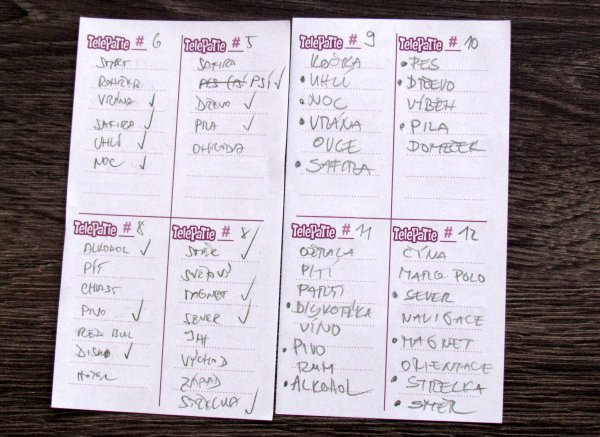 TELEPATIE # 6
START
VRÁNA ✓
SAFIRA ✓
UHLÍ ✓
NOC ✓
TELEPATIE # 5
SAFIRA
PES PSÍ ✓
DŘEVO ✓
PILA ✓
OHRADA
TELEPATIE # 8
ALKOHOL ✓
PÍT
CHLAST
PIVO ✓
RED BULL
DISKO ✓
HOTEL
TELEPATIE # 8
SMĚR ✓
SVĚTOVÝ
MAGNET ✓
SEVER ✓
JIH
VÝCHOD
ZÁPAD
STŘELKA ✓
TELEPATIE # 9
KOČKA
• UHLÍ
• NOC
• VRÁNA
OVCE
• SAFIRA
TELEPATIE # 10
• PES
• DŘEVO
VÝBĚH
• PILA
DOMEČEK
TELEPATIE # 11
OŽRALA
PITÍ
PARTI
• DISKOTÉKA
VÍNO
• PIVO
RUM
• ALKOHOL
TELEPATIE # 12
ČÍNA
MARCO POLO
• SEVER
NAVIGACE
• MAGNET
ORIENTACE
• STŘELKA
• SMĚR